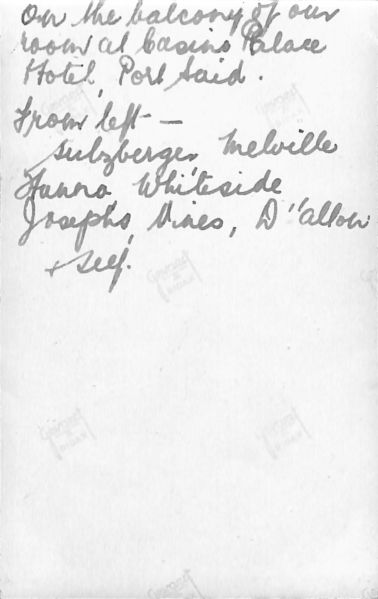 On the balcony of our
room at Casino Palace
Hotel, Port Said.
From left —
Sulzberger, Melville
Hanna, Whiteside,
Josephs, Vines, D'Allow
+ self.